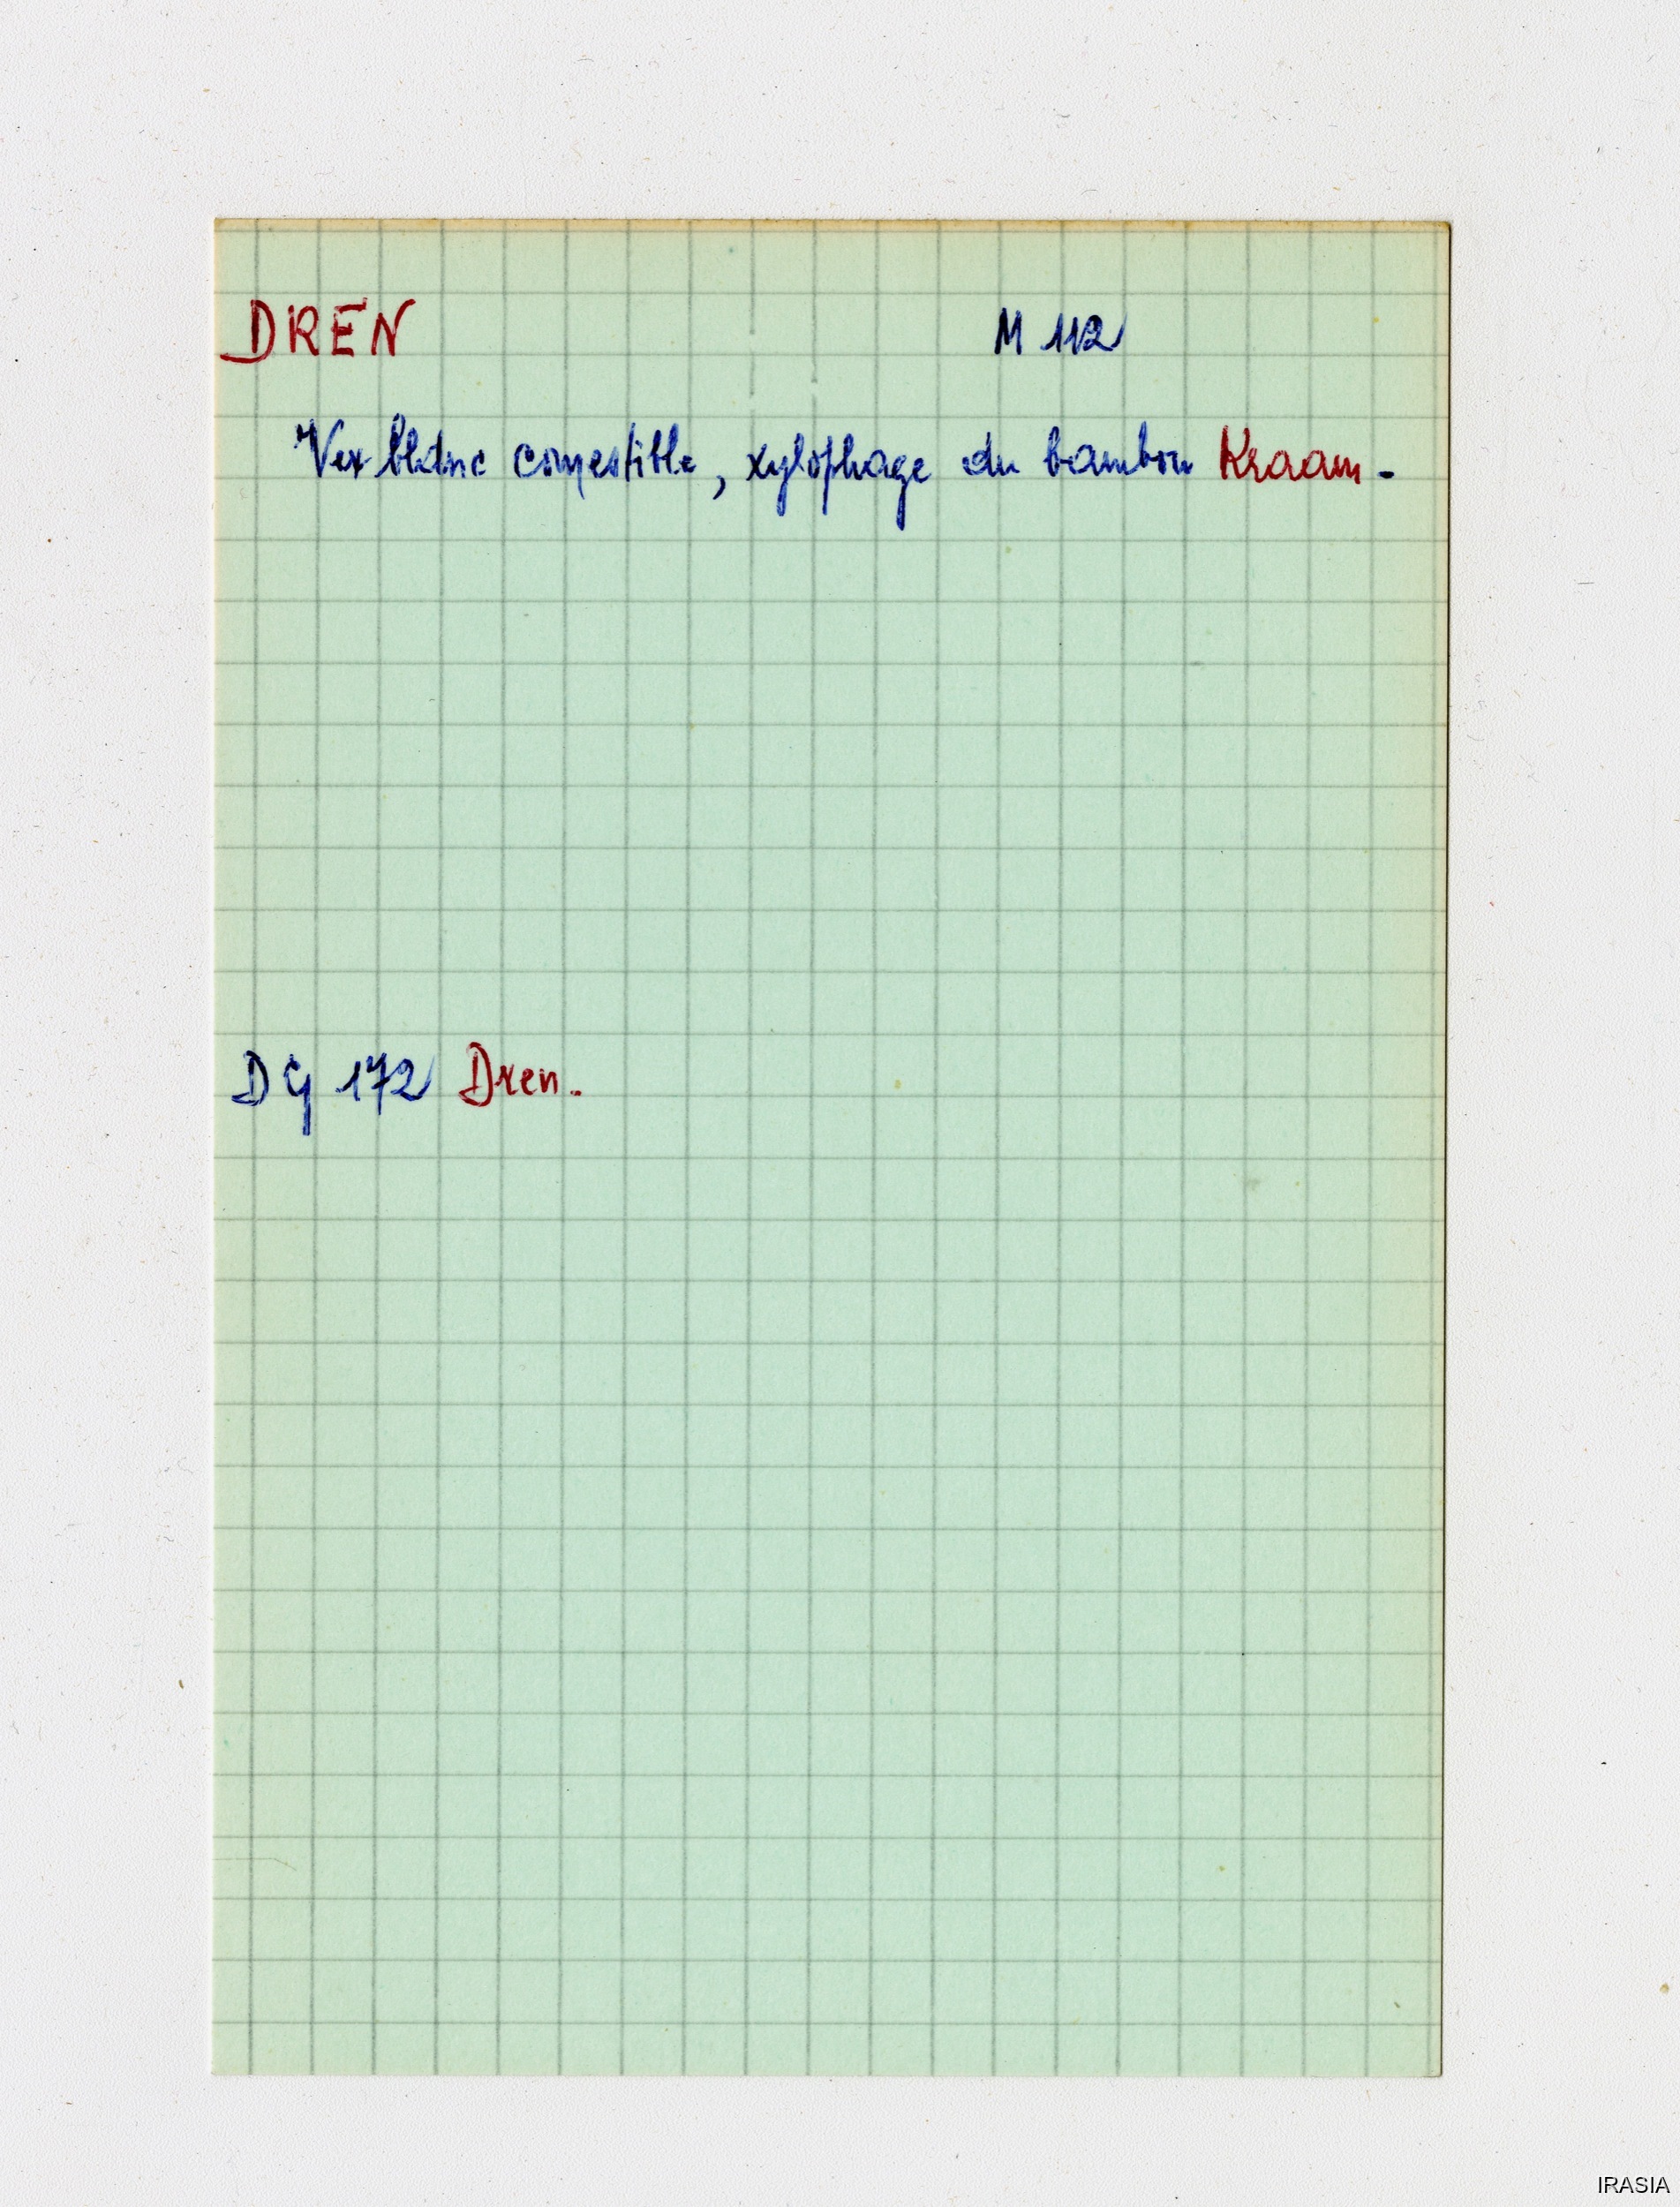 DREN M 112
Ver blanc comestible, xylophage du bambou Kraam.
DG 172 Dren.
IRASIA